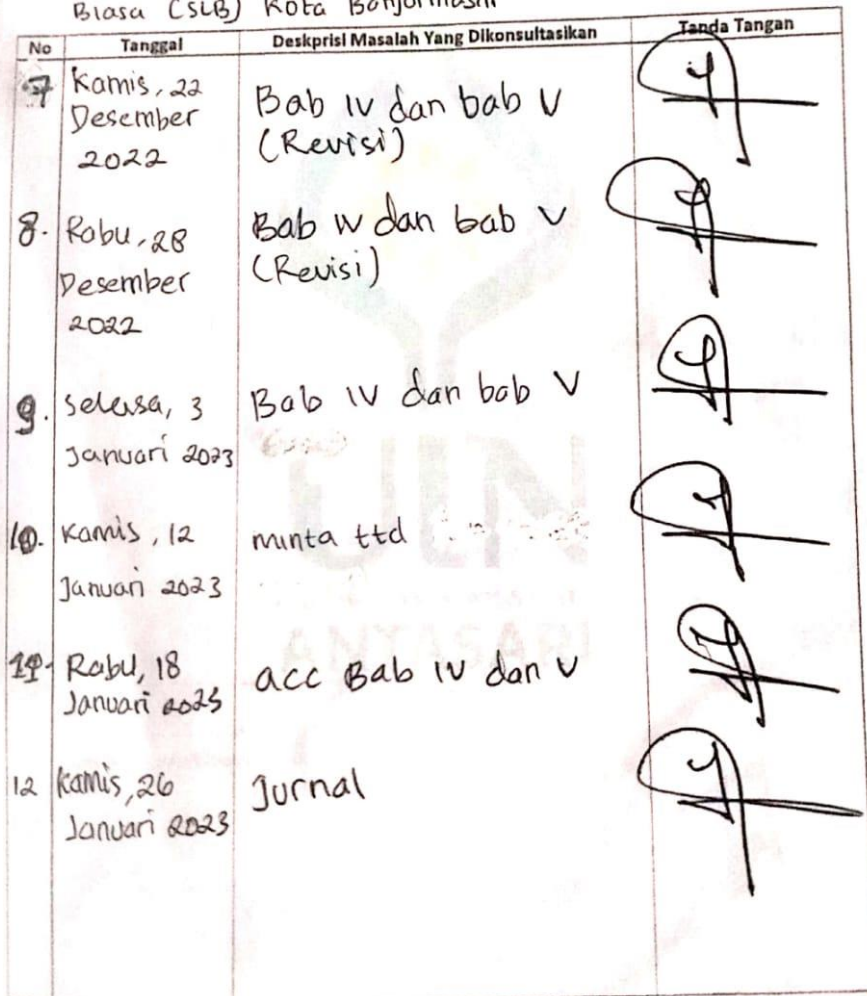 Biasa (SLB) Kota Banjarmasin
No Tanggal Deskprisi Masalah Yang Dikonsultasikan Tanda Tangan
7 Kamis, 22 Desember 2022 Bab IV dan bab V (Revisi)
8. Rabu, 28 Desember 2022 Bab IV dan bab V (Revisi)
9. Selasa, 3 Januari 2023 Bab IV dan bab V
10. Kamis, 12 Januari 2023 minta ttd
11. Rabu, 18 Januari 2023 acc Bab IV dan V
12 Kamis, 26 Januari 2023 Jurnal
UIN
ANTASARI